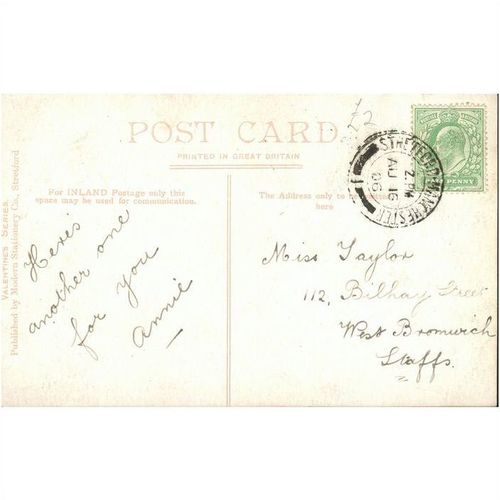 POST CARD.
PRINTED IN GREAT BRITAIN
For INLAND Postage only this
space may be used for communication.
The Address only to be
here
VALENTINE'S SERIES.
Published by Modern Stationery Co., Stretford
Heres
another one
for you
Annie
£2
STRETFORD MANCHESTER
2 PM
AU 16
06
1
Miss Taylor
112, Bilhay Street
West Bromwich
Staffs.